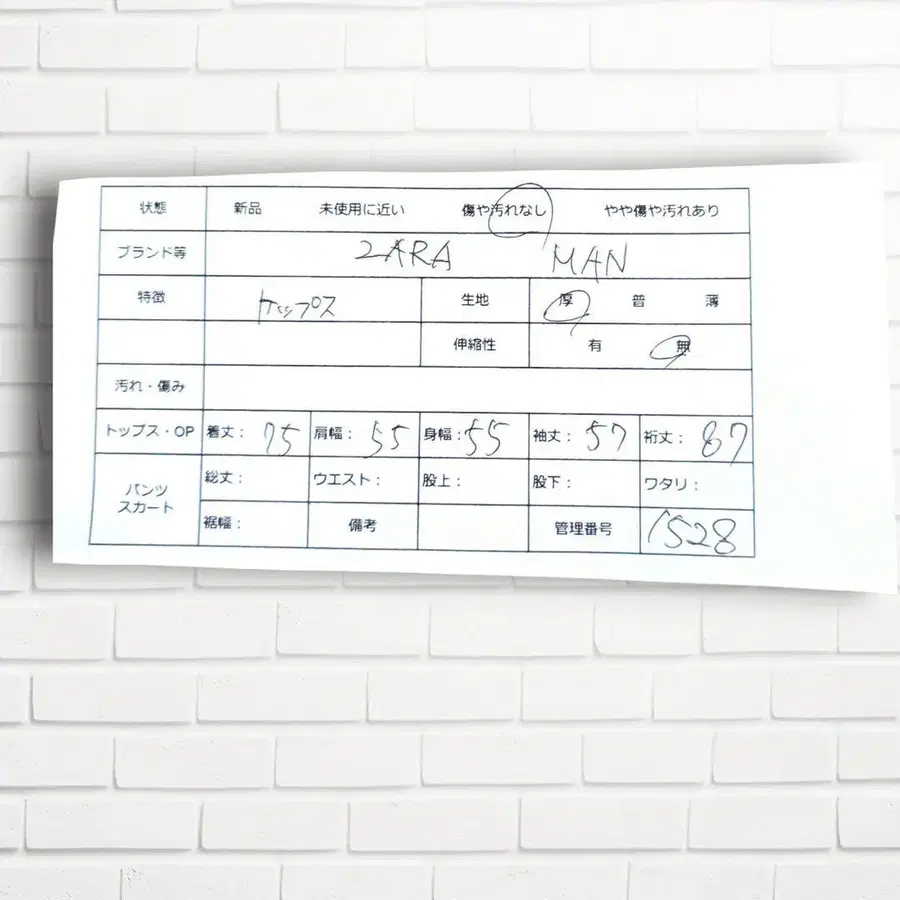 状態 新品 未使用に近い 傷や汚れなし やや傷や汚れあり
ブランド等 ZARA MAN
特徴 トップス 生地 厚 普 薄
伸縮性 有 無
汚れ・傷み
トップス・OP 着丈： 75 肩幅： 55 身幅： 55 袖丈： 57 裄丈： 87
パンツ スカート 総丈： ウエスト： 股上： 股下： ワタリ：
裾幅： 備考 管理番号 1528